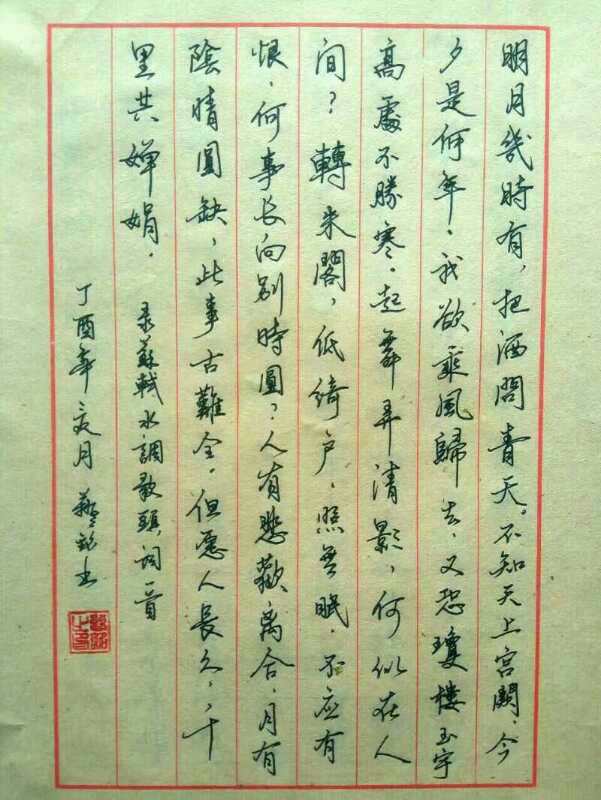 明月幾時有，把酒問青天。不知天上宫闕，今
夕是何年。我欲乘風歸去，又恐瓊樓玉宇
高處不勝寒。起舞弄清影，何似在人
间？轉朱閣，低綺户，照無眠。不應有
恨，何事长向别時圓？人有悲歡离合，月有
陰晴圓缺，此事古難全。但愿人長久，千
里共嬋娟。录蘇軾水調歌頭词一首
丁酉年亥月